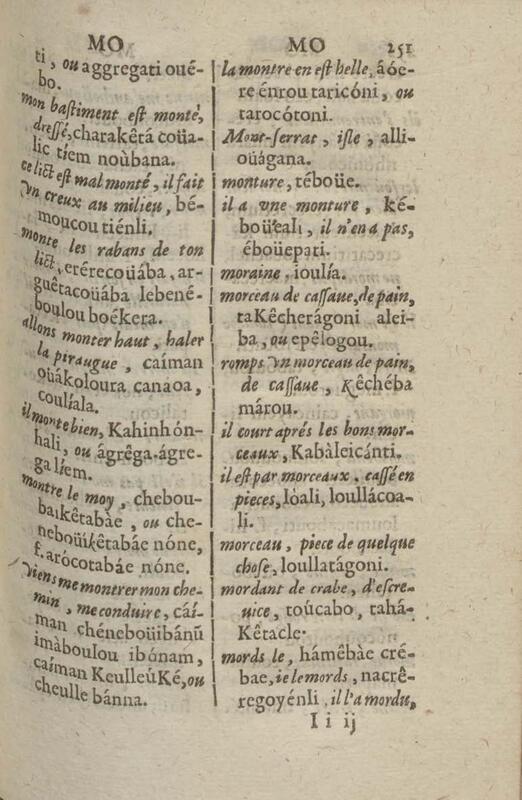 MO
ti, ou aggregati oué-
bo.
mon bastiment est monté,
dressé, charakêtá coüa-
lic tíem noùbana.
ce lict est mal monté, il fait
vn creux au milieu, bé-
moucou tiénli.
monte les rabans de ton
lict, erérecoüába, ar-
guêtacoüába lebené-
boulou boékera.
allons monter haut, haler
la piraugue, caíman
oüákoloura canaoa,
coulíala.
il monte bien, Kahinhón-
hali, ou ágrêga-ágre-
galíem.
montre le moy, chebou-
baikêtabàe, ou che-
neboüikêtabáe nóne,
f. arócotabáe nóne.
viens me montrer mon che-
min, me conduire, cáí-
man chéneboüibánũ
imàboulou ibónam,
caíman KeulleúKé, ou
cheulle bánna.
MO 251
la montre en est belle, áóe-
re énrou taricóni, ou
tarocótoni.
Mont-serrat, isle, alli-
oüágana.
monture, téboüe.
il a vne monture, ké-
boüeali, il n'en a pas,
éboüepati.
moraine, ioulía.
morceau de cassaue, de pain,
taKêcherágoni alei-
ba, ou epêlogou.
romps vn morceau de pain,
de cassaue, Kêchéba
márou.
il court aprés les bons mor-
ceaux, Kabàleicánti.
il est par morceaux, cassé en
pieces, lòali, loullácoa-
li.
morceau, piece de quelque
chose, loullatágoni.
mordant de crabe, d'escre-
uice, toúcabo, tahá-
Kêtacle.
mords le, hámêbàe cré-
bae, ie le mords, nacrê-
regoyénli, il l'a mordu,
I i ij